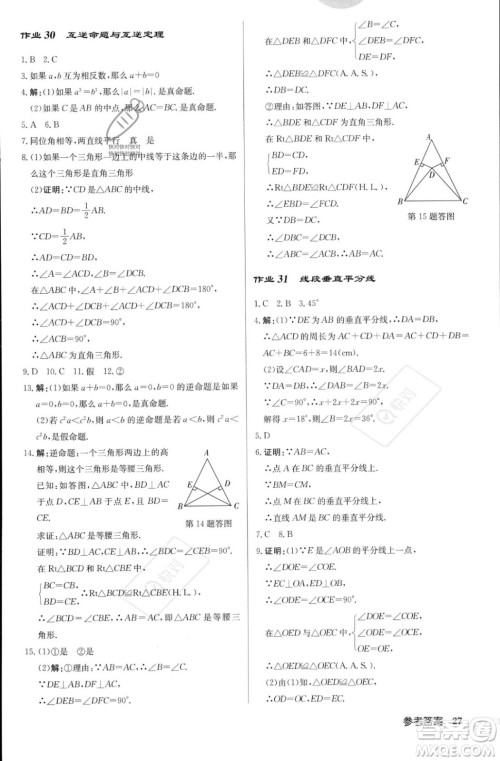 作业 30 互逆命题与互逆定理
1. B 2. C
3. 如果 a,b 互为相反数,那么 a+b=0
4. 解:(1)如果 a=b,那么|a|=|b|,是真命题.
(2)如果 C 是 AB 的中点,那么AC=BC.是真命题.
5. A 6. B
7. 同位角相等,两直线平行 真 是
8. (1)如果一个三角形一边上的中线等于这条边的一半,那
么这个三角形是直角三角形
(2)证明:∵CD 是△ABC 的中线,
∴AD=BD=1/2 AB.
∵CD=1/2 AB,
∴AD=CD=BD.
∴∠A=∠ACD,∠B=∠BCD.
在△ABC 中,∠A+∠B+∠ACB=180°,
∴∠ACD+∠BCD+∠ACB=180°.
∴∠ACD+∠BCD=90°.
∴∠ACB=90°.
9. D 10. C 11. 假 12. ②
13. 解:(1)如果 a=0,那么 ab=0 的逆命题是如果 ab=0,那
么 a=0,是假命题.
(2)若 c²a<c²b,则 a<b 的逆命题是若 a<b,则 c²a<
c²b,是假命题.
14. 解:逆命题:一个三角形两边上的高
相等,则这个三角形是等腰三角形.
已知:在△ABC 中,BD⊥AC 于
点 D,CE⊥AB 于点 E,且 BD=
CE.
求证:△ABC 是等腰三角形.
第14题答图
证明:∵BD⊥AC,CE⊥AB,
∴∠CEB=∠BDC=90°.
在 Rt△BCE 和 Rt△CBD 中,
BC=CB,
CE=BD,
∴Rt△BCE≌Rt△CBD(H.L.).
∴∠ABC=∠ACB.
∴AB=AC,即△ABC 是等腰三角形.
15. (1)①是 ②是
(2)解:①理由:如答图,
∵AB=AC,
∴∠ABC=∠ACB.
∵∠ABD=∠ACD,
∴∠DBC=∠DCB.
∴BD=CD.
在△DEB 和△DFC 中,
∠DEB=∠DFC,
∠EBD=∠FCD,
BD=CD,
∴△DEB≌△DFC.
∴DE=DF.
②理由:如答图,
∵DE⊥AB,DF⊥AC,
∴△DEB 和△DFC 为直角三角形.
在 Rt△DEB 和 Rt△DFC 中,
BD=CD,
DE=DF,
∴Rt△DEB≌Rt△DFC(H.L.).
∴BE=CF.
又∵∠DBC=∠DCB,
∴∠ABC=∠ACB.
∴AB=AC.
第15题答图
作业 31 线段垂直平分线
1. C 2. B 3. 45°
4. 解:(1)∵DE 为 AB 的垂直平分线,
∴AD=BD.
∴△ACD 的周长为 AC+CD+AD=AC+CD+
BD=AC+BC=6+8=14(cm).
(2)设∠CAD=x,则∠BAD=2x.
∵DA=DB,
∴∠B=∠BAD=2x.
在△ABC 中,∠C=90°,
∴∠B+∠CAB=90°,∴x+2x+2x=90°.
解得 x=18°,∴∠B=2x=36°.
5. D
6. 证明:∵AB=AC,
∴点 A 在 BC 的垂直平分线上.
∵BM=CM,
∴点 M 在 BC 的垂直平分线上.
∴直线 AM 是 BC 的垂直平分线.
7. C 8. B
9. 证明:(1)∵E 是∠AOB 的平分线上一点,
∴∠DOE=∠COE.
∵EC⊥OB,ED⊥OA,
∴∠ODE=∠OCE=90°.
在△OED 与△OEC 中,
∠DOE=∠COE,
∠ODE=∠OCE,
OE=OE,
∴△OED≌△OEC(A.A.S.).
∴OC=OD.
(2)由(1)知,△OED≌△OEC.
参考答案 27